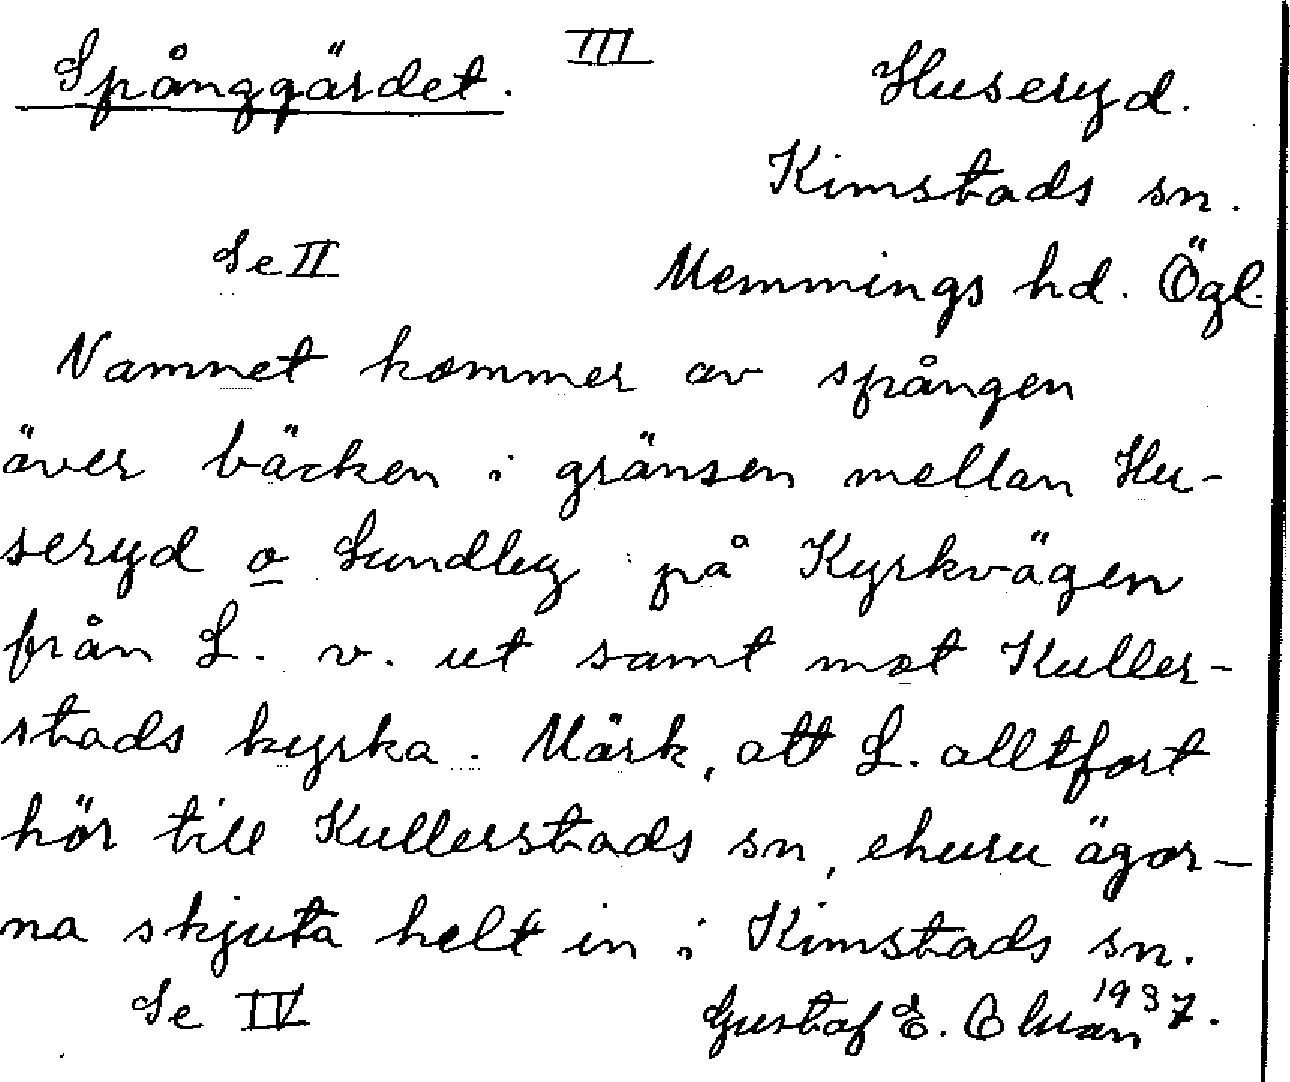 Spånggärdet. III Huseryd.
Kimstads sn.
Se II Memmings hd. Ögl.
Namnet kommer av spången
över bäcken i gränsen mellan Hu-
seryd o Sundby på Kyrkvägen
från S. v. ut samt mot Kuller-
stads kyrka. Märk, att S. alltfort
hör till Kullerstads sn, ehuru ägor-
na skjuta helt in i Kimstads sn.
Se IV Gustaf E. 1937.